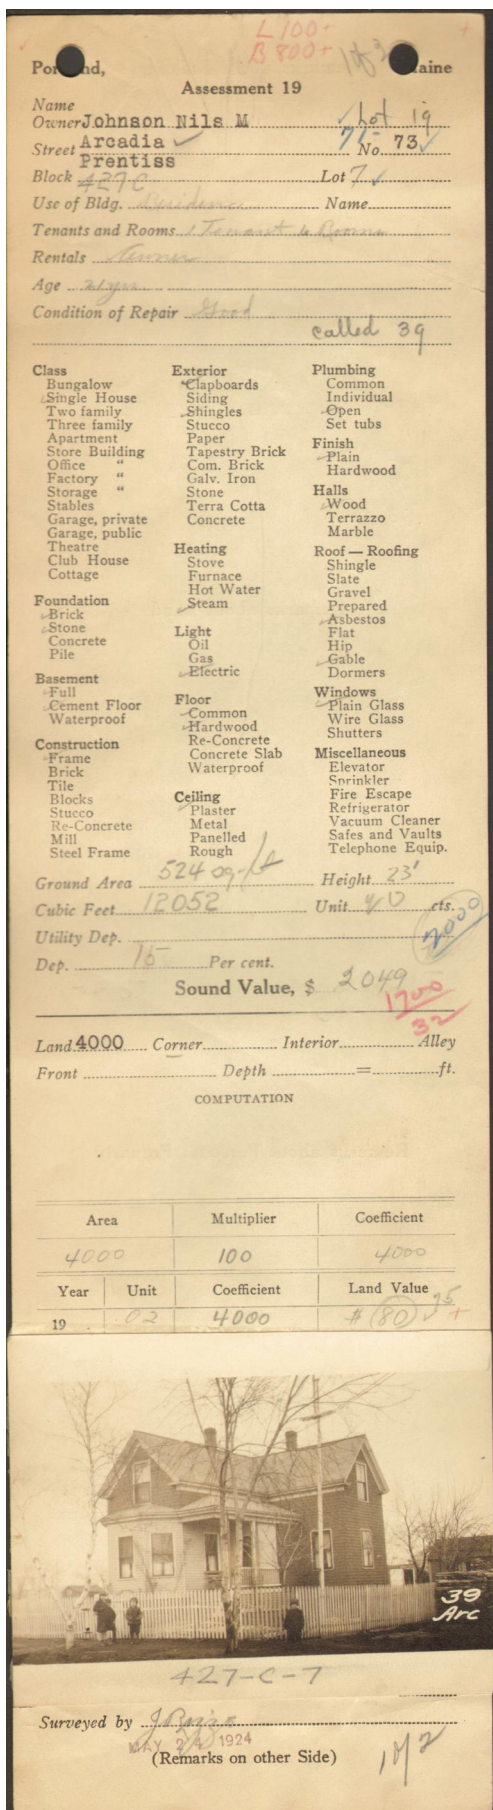 L 100+
B 800+
Portland, Maine
Assessment 19
Name
Owner Johnson Nils M Lot 19
Street Arcadia 71- No. 73
Prentiss
Block 427C Lot 7
Use of Bldg. Residence Name
Tenants and Rooms 1 Tenant 6 Rooms
Rentals Owner
Age
Condition of Repair Good
called 39
Class
Bungalow
Single House
Two family
Three family
Apartment
Store Building
Office "
Factory "
Storage "
Stables
Garage, private
Garage, public
Theatre
Club House
Cottage
Foundation
Brick
Stone
Concrete
Pile
Basement
Full
Cement Floor
Waterproof
Construction
Frame
Brick
Tile
Blocks
Stucco
Re-Concrete
Mill
Steel Frame
Exterior
Clapboards
Siding
Shingles
Stucco
Paper
Tapestry Brick
Com. Brick
Galv. Iron
Stone
Terra Cotta
Concrete
Heating
Stove
Furnace
Hot Water
Steam
Light
Oil
Gas
Electric
Floor
Common
Hardwood
Re-Concrete
Concrete Slab
Waterproof
Ceiling
Plaster
Metal
Panelled
Rough
Plumbing
Common
Individual
Open
Set tubs
Finish
Plain
Hardwood
Halls
Wood
Terrazzo
Marble
Roof — Roofing
Shingle
Slate
Gravel
Prepared
Asbestos
Flat
Hip
Gable
Dormers
Windows
Plain Glass
Wire Glass
Shutters
Miscellaneous
Elevator
Sprinkler
Fire Escape
Refrigerator
Vacuum Cleaner
Safes and Vaults
Telephone Equip.
Ground Area 524 sq. ft Height 23'
Cubic Feet 12052 Unit 20 cts.
Utility Dep. 2000
Dep. 15 Per cent.
Sound Value, $ 2049
1700
32
Land 4000 Corner Interior Alley
Front Depth = ft.
COMPUTATION
Area Multiplier Coefficient
4000 100 4000
Year Unit Coefficient Land Value
19 02 4000 $ 80 75 +
39
Arc
427-C-7
Surveyed by
MAY 24 1924
(Remarks on other Side)
1 of 2